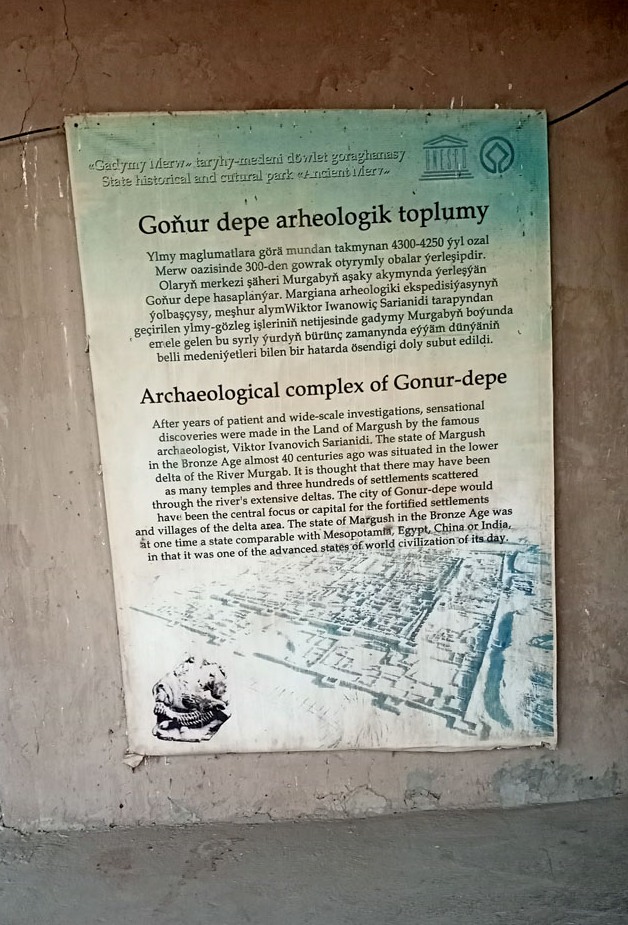 «Gadymy Merw» taryhy-medeni döwlet goraghanasy
State historical and cutural park «Ancient Merv»
UNESCO
Goňur depe arheologik toplumy
Ylmy maglumatlara görä mundan takmynan 4300-4250 ýyl ozal
Merw oazisinde 300-den gowrak otyrymly obalar ýerleşipdir.
Olaryň merkezi şäheri Murgabyň aşaky akymynda ýerleşýän
Goňur depe hasaplanýar. Margiana arheologiki ekspedisiýasynyň
ýolbaşçysy, meşhur alymWiktor Iwanowiç Sarianidi tarapyndan
geçirilen ylmy-gözleg işleriniň netijesinde gadymy Murgabyň boýunda
emele gelen bu syrly ýurdyň bürünç zamanynda eýýäm dünýäniň
belli medeniýetleri bilen bir hatarda ösendigi doly subut edildi.
Archaeological complex of Gonur-depe
After years of patient and wide-scale investigations, sensational
discoveries were made in the Land of Margush by the famous
archaeologist, Viktor Ivanovich Sarianidi. The state of Margush
in the Bronze Age almost 40 centuries ago was situated in the lower
delta of the River Murgab. It is thought that there may have been
as many temples and three hundreds of settlements scattered
through the river's extensive deltas. The city of Gonur-depe would
have been the central focus or capital for the fortified settlements
and villages of the delta area. The state of Margush in the Bronze Age was
at one time a state comparable with Mesopotamia, Egypt, China or India,
in that it was one of the advanced states of world civilization of its day.